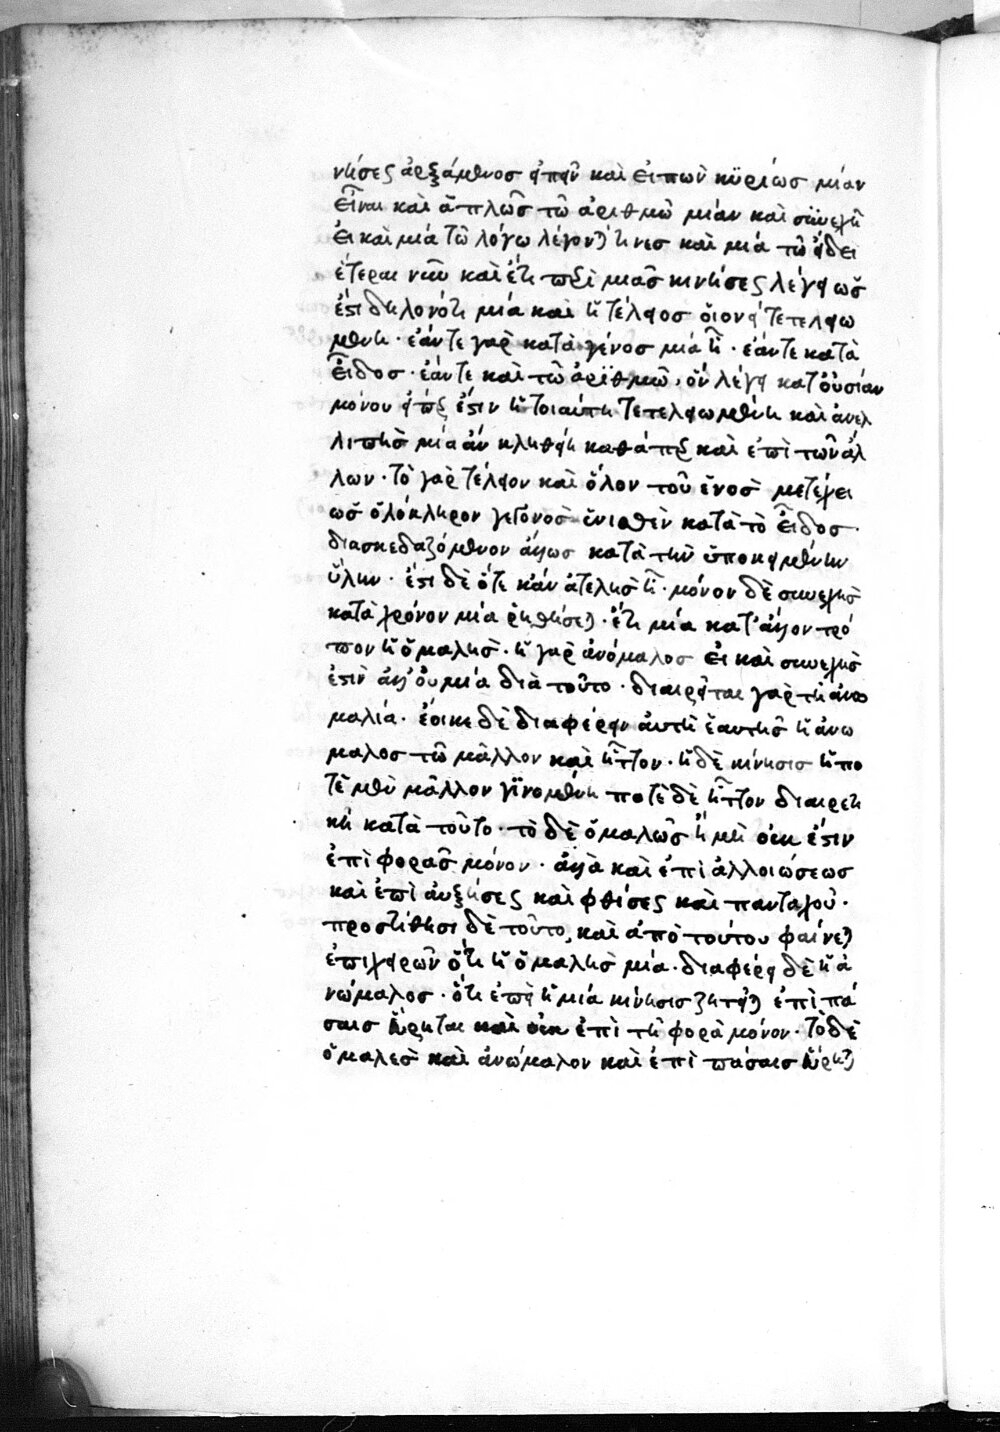 νήσεως ἀρξάμενος εἰπεῖν καὶ εἰπὼν κϋρίως μίαν
εἶναι καὶ ἁπλῶς τῶ ἀριθμῶ μίαν καὶ συνεχῆ
εἰ καὶ μία τῶ λόγω λέγονταί τινες καὶ μία τῶ εἴδει
ἕτεραι νῦν καὶ ἔτι περὶ μιᾶς κινήσεως λέγει ὡς
ἐστὶ δηλονότι μία καὶ ἡ τέλειος οἱονεὶ τετελειω
μένη · ἐάν τε γὰρ κατὰ γένος μία ἦ · ἐάν τε κατὰ
εἶδος · ἐάν τε καὶ τῶ ἀρϊθμῶ, ὃν λέγει κατ' οὐσίαν
μόνου εἴπερ ἐστὶν ἡ τοιαύτη τετελειωμένη καὶ ἀνελ
λιπὴς μία ἂν κληθείη καθάπερ καὶ ἐπὶ τῶν ἄλ
λων · τὸ γὰρ τέλειον καὶ ὅλον τοῦ ἑνὸς μετέχει
ὡς ὁλόκληρον γεγονὸς ἑνιαθὲν κατὰ τὸ εἶδος ·
διασκεδαζόμενον ἄλλως κατὰ τὴν ὑποκειμένην
ὕλην · ἔστι δὲ ὅτε κἂν ἀτελὴς ἦ · μόνον δὲ συνεχὴς
κατὰ χρόνον μία ῥηθήσεται · ἔτι μία κατ' ἄλλον τρό
πον ἡ ὁμαλὴς · ἡ γὰρ ἀνόμαλος εἰ καὶ συνεχὴς
ἐστὶν ἀλλ' οὐ μία διὰ τοῦτο · διαιρεῖται γὰρ τῆ ἀνω
μαλία · ἔοικε δὲ διαφέρειν αὐτὴ ἑαυτῆς ἡ ἀνω
μαλος τῶ μᾶλλον καὶ ἧττον · ἡ δὲ κίνησις ἡ πο
τὲ μὲν μᾶλλον γϊνομένη ποτὲ δὲ ἧττον διαιρετι
κὴ κατὰ τοῦτο · τὸ δὲ ὁμαλῶς ἢ μὴ οὐκ ἔστιν
ἐπὶ φορᾶς μόνον · ἀλλὰ καὶ ἐπὶ ἀλλοιώσεως
καὶ ἐπὶ αὐξήσεως καὶ φθίσεως καὶ πανταχοῦ ·
προστίθησι δὲ τοῦτο, καὶ ἀπὸ τούτου φαίνεται
ἐπιχειρῶν ὅτι ἡ ὁμαλὴς μία · διαφέρει δὲ ἡ ἀ
νώμαλος · ὅτι ἐπεὶ ἡ μία κίνησις ζητεῖται ἐπὶ πά
σαις εἴρηται καὶ οὐκ ἐπὶ τῆ φορᾶ μόνον · τὸ δὲ
ὁμαλὲς καὶ ἀνώμαλον καὶ ἐπὶ πάσαις εἴρηται